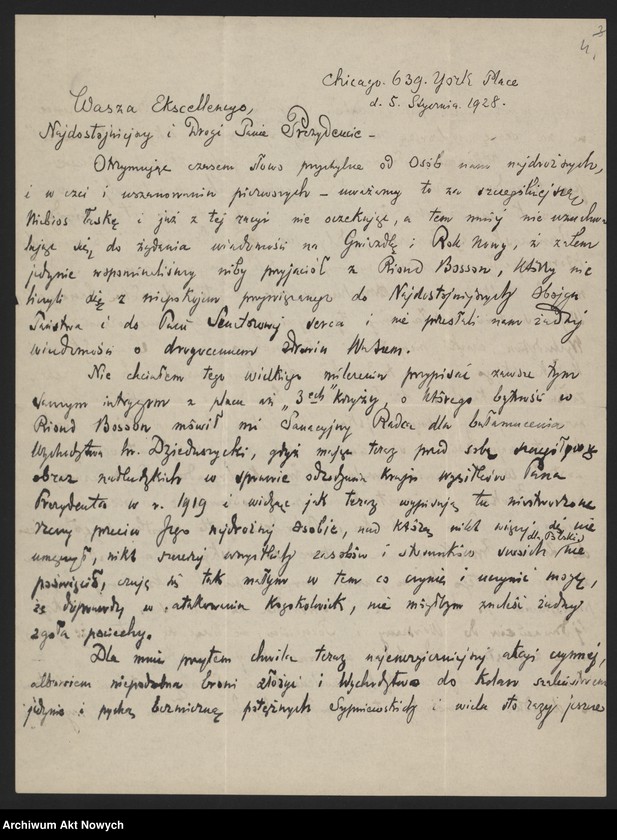 4.
Chicago. 639. York Place
d. 5. Stycznia. 1928.
Wasza Ekscellencyo,
Najdostojniejszy i Drogi Panie Prezydencie –
Otrzymując czasem słowo przychylne od Osób nam najdroższych,
i w czci i uszanowaniu pierwszych – uważamy to za szczególniejszą
Niebios łaskę i już z tej racyi nie oczekując, a tem mniej nie
się do żądania wiadomości na Gwiazdkę i Rok Nowy, że zatem
jedynie wspomnieliśmy niby przyjaciół z Riond Bosson, którzy nie
liczyli się z niepokojem przywiązanego do Najdostojniejszych Obojga
Państwa i do Pani Senatorowej serca i nie przesłali nam żadnej
wiadomości o drogocennem zdrowiu Waszem.
Nie chciałem tego wielkiego milczenia przypisać zawsze tym
samym intrygom z placu aż „3ech" krzyży, o którego bytności w
Riond Bosson mówił mi Sanacyjny Radca dla bałamucenia
Wychodztwa hr. Dzieduszycki, gdyż mając teraz przed sobą
obraz nadludzkich w sprawie odrodzenia kraju wysiłków Pana
Prezydenta w r. 1919 i widząc jak teraz wypisują tu niestworzone
rzeczy przeciw Jego najdroższej osobie, nad którą nikt więcej się nie
umęczył, nikt szerzej wszystkich zasobów i stosunków swoich dla Polski nie
poświęcił, czuję się tak małym w tem co czynię i uczynić mogę,
że doprawdy w atakowaniu kogokolwiek, nie mógłbym znaleść żadnej
zgoła pociechy.
Dla mnie przytem chwila teraz najenergiczniejszej akcyi czynnej,
albowiem niepodobna broni złożyć i Wychodztwo do kolan
jedynie i pychą bezmierną potężnych i wielu sto razy jeszcze
Archiwum Akt Nowych